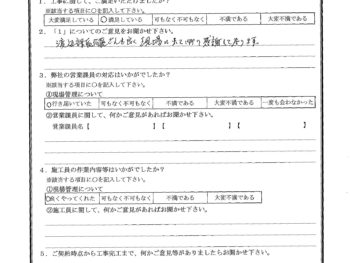 1．工事に関して、ご満足いただけましたか？
※該当する項目に○を記入して下さい。
大変満足している ○満足している 可も不可も不可もなく 不満である 大変不満である
2．「1」についてのご意見をお聞かせ下さい。
3．弊社の営業課員の対応はいかがでしたか？
※該当する項目に○を記入して下さい。
①現場管理について
○行き届いていた 可もなく不可もなく 不満である 大変不満である 一度も会わなかった
②営業課員に関して、何かご意見があればお聞かせ下さい。
営業課員名【 】【 】【 】
4．施工員の作業内容等はいかがでしたか？
※該当する項目に○を記入して下さい。
①現場管理について
○良くやってくれた 可もなく不可もなく 不満である 大変不満である
②施工員に関して、何かご意見があればお聞かせ下さい。
5．ご契約時点から工事完工まで、何かご意見等がありましたらお聞かせ下さい。